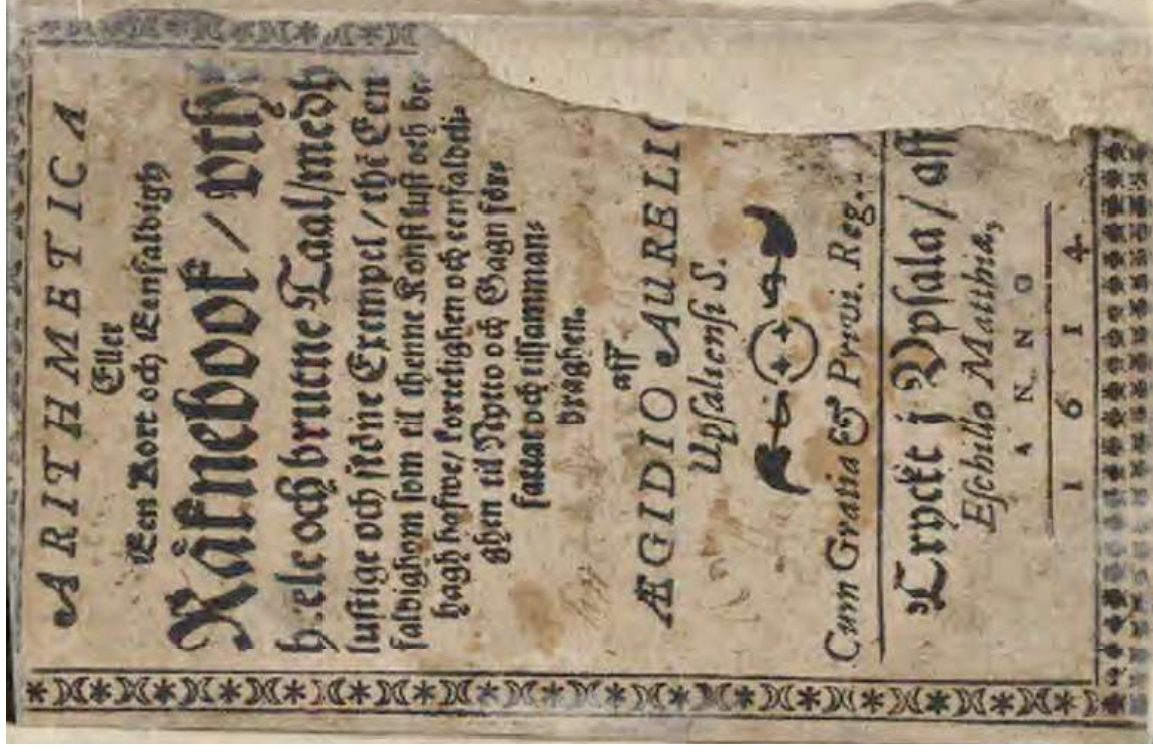 ARITHMETICA
Eller
Een Kort och Eenfaldigh
Räknebook / vth
heele och brutne Taal/medh
lustige och sköne Exempel / thē Een
faldighom som til thenne Konst lust och be-
hagh hafwe/ korteligen och eenfaldeli-
ghen til Nytto och Gagnför-
fattat och tilsamman-
draghen.
aff
ÆGIDIO AURELI
Upsaliensi S.
Cum Gratia & Privi. Reg.
Tryckt j Vpsala / aff
Eschillo Matthiæ,
ANNO
1614